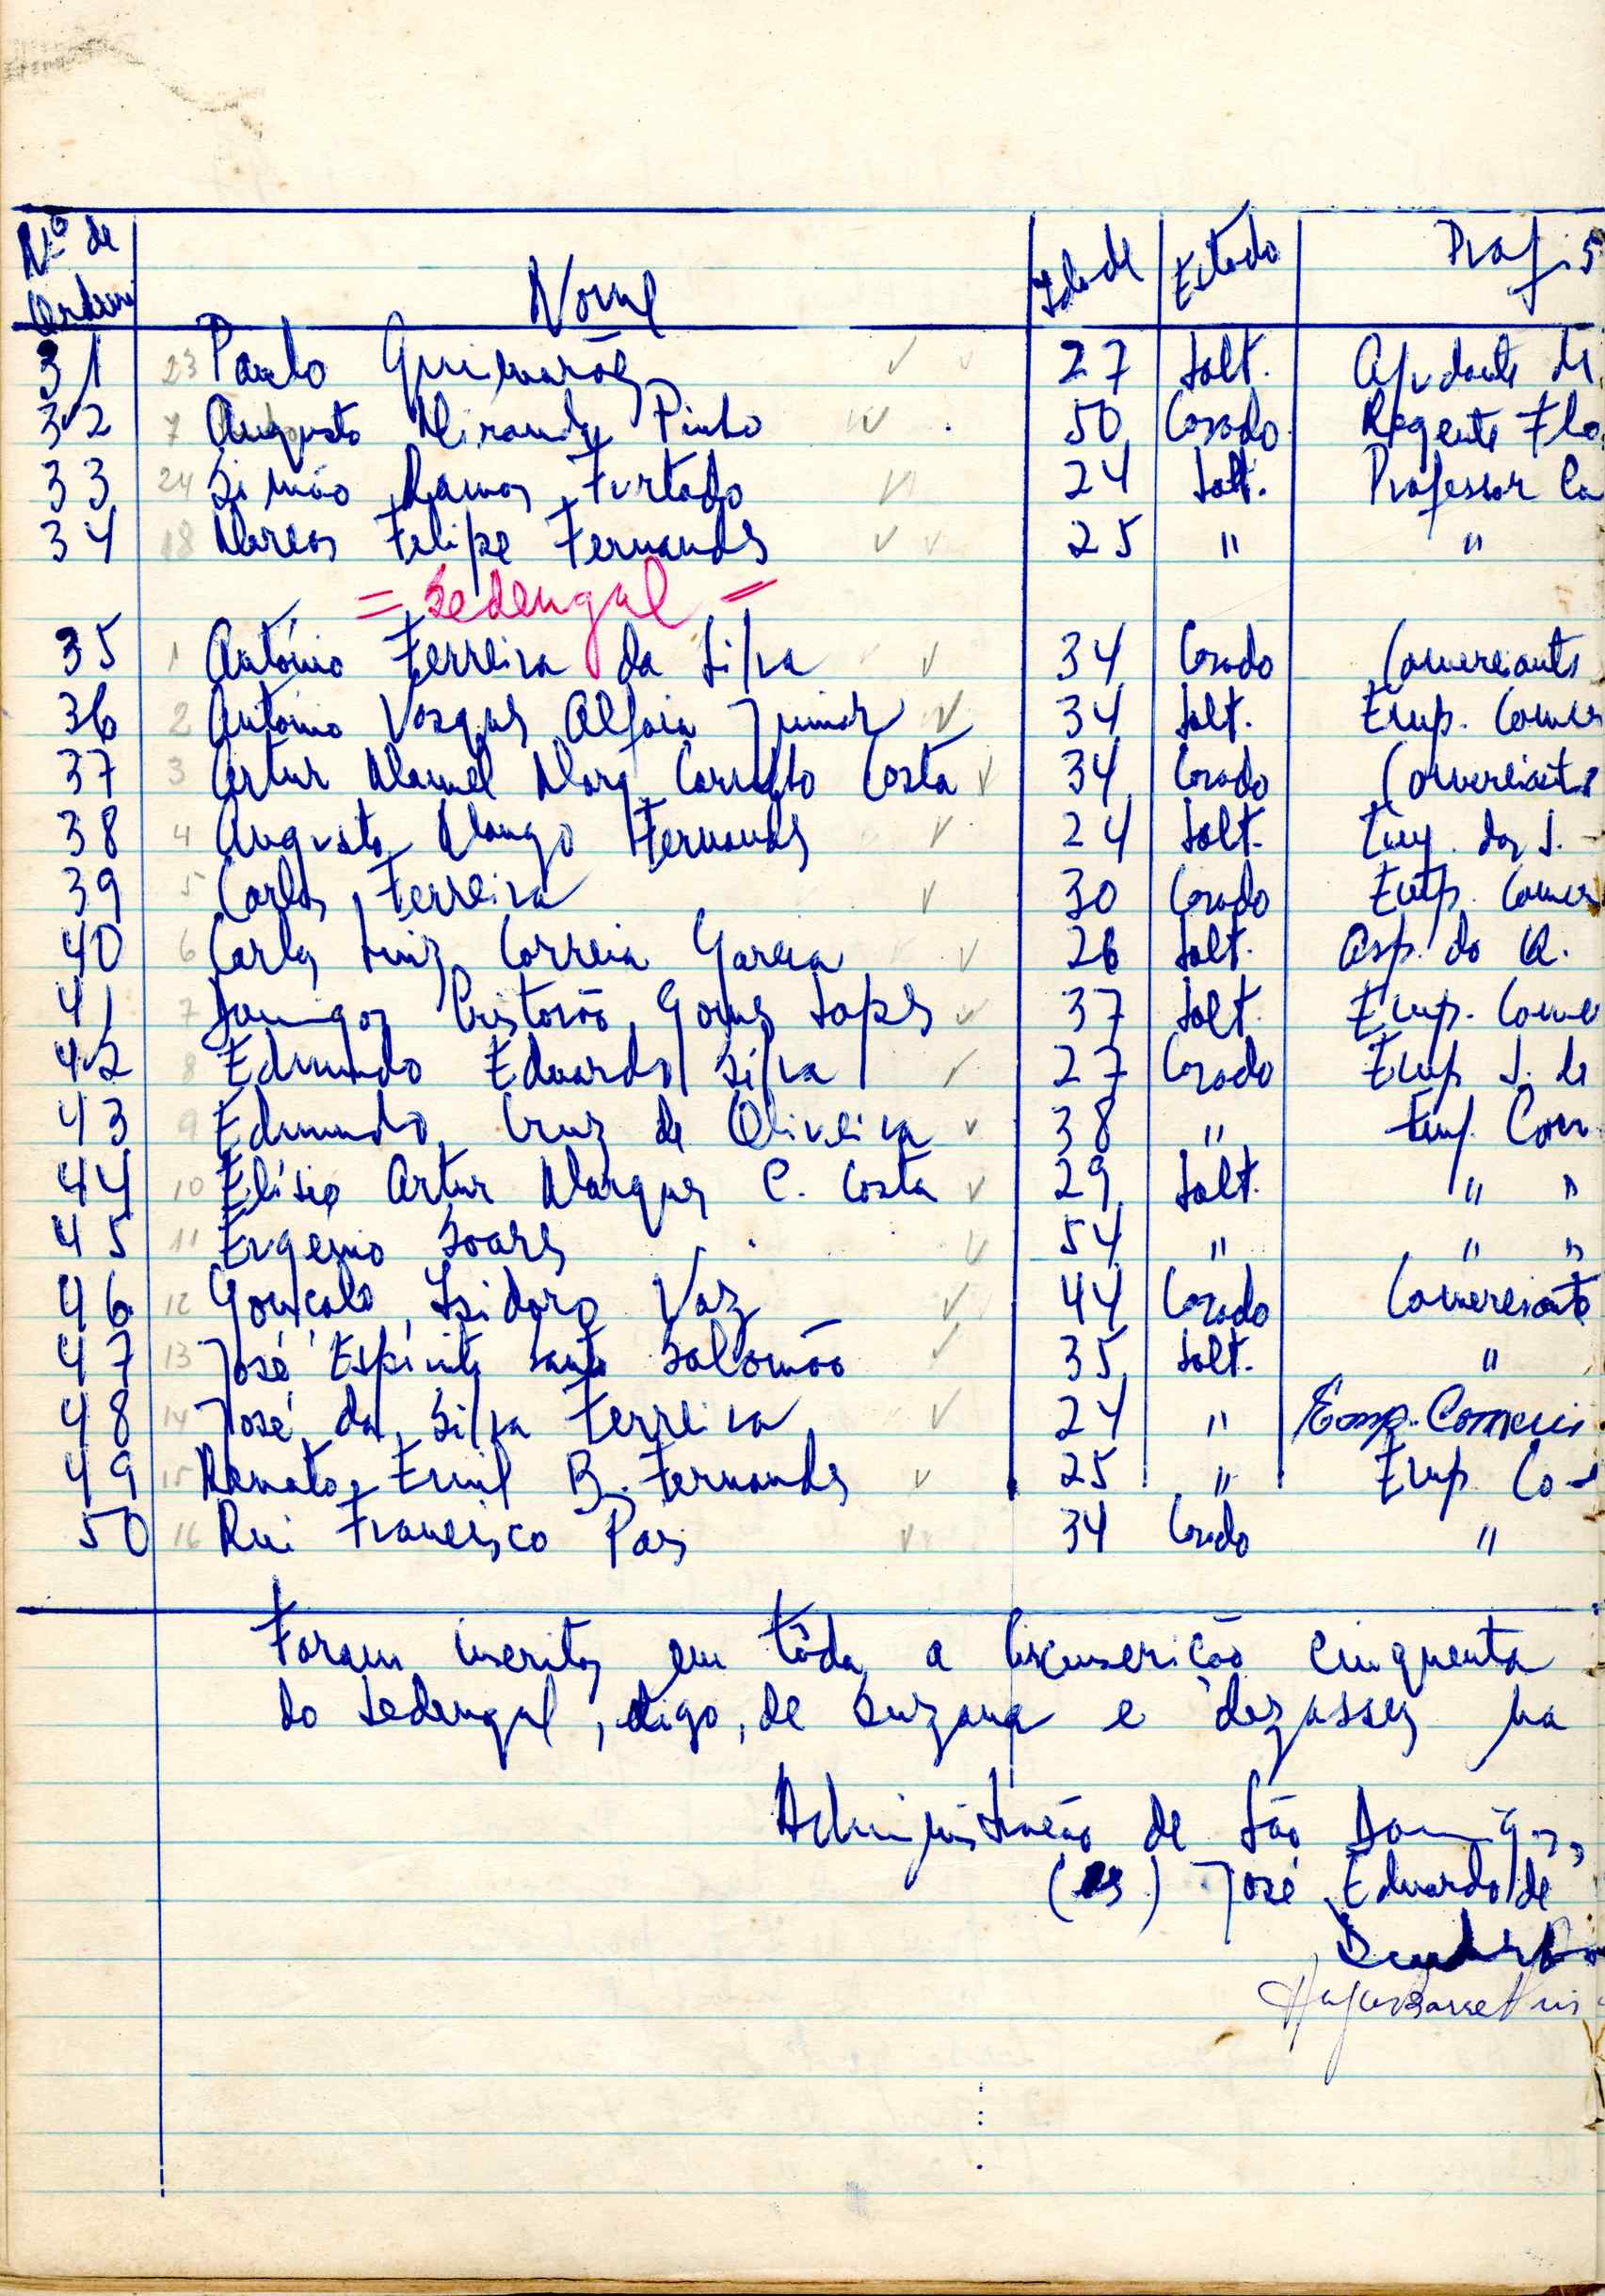 Nº de Ordem Nome Idade Estado Profis
31 23 Paulo Guimarães 27 Solt. Ajudante de
32 7 Augusto Miranda Pinho 50 Casado Regente Flo
33 24 Simão Ramos Furtado 24 Solt. Professor Ca
34 18 Marcos Felipe Fernandes 25 " "
= Sedengal =
35 1 António Ferreira da Silva 34 Casado Comerciante
36 2 António Vasques Alfaia Junior 34 Solt. Emp. Comer
37 3 Artur Manuel Marq Carvalho Costa 34 Casado Comerciante
38 4 Augusto Mango Fernandes 24 Solt. Emp. dos S.
39 5 Carlos Ferreira 30 Casado Emp. Comer
40 6 Carlos Luiz Correia Garcia 26 Solt. Asp. do Q.
41 7 Domingos Cristovão Gomes Lopes 37 Solt. Emp. Comer
42 8 Edmundo Eduardo Silva 27 Casado Emp S. de
43 9 Edmundo Cruz de Oliveira 38 " Emp. Com
44 10 Elísio Artur Marques C. Costa 29 Solt. " "
45 11 Eugénio Soares 54 " " "
46 12 Gonçalo Isidoro Vaz 44 Casado Comerciante
47 13 José Espírito Santo Salomão 35 Solt. "
48 14 José da Silva Ferreira 24 " Emp. Comerci
49 15 Renato Emil B. Fernandes 25 " Emp. Co
50 16 Rui Francisco Pais 34 Casado "
Foram inscritos em tôda a Circunscrição cinquenta
do Sedengal, digo, de Suzana e dezasseis na
Administração de São Domingos,
(as) José Eduardo de